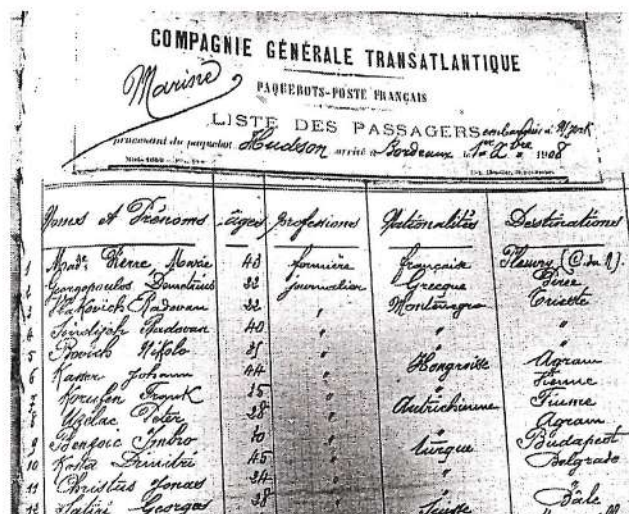 COMPAGNIE GÉNÉRALE TRANSATLANTIQUE
Marine
PAQUEBOTS-POSTE FRANÇAIS
LISTE DES PASSAGERS embarqués à N/York
provenant du paquebot Hudson arrivé à Bordeaux le 1er Xbre 1908
Noms et Prénoms âges professions Nationalités Destinations
1 Made Pierre Marie 43 fermière française Fleury
Georgopoulos Demetrius 22 journalier Grecque Pirée
3 Vlakovich Radovan 22 " Monténégro Trieste
4 Radovan 40 " " "
5 Nikolo 35 " "
6 Kaiser Johann 44 " Hongroise Agram
7 Frank 25 " " Fiume
8 Uzelac Peter 28 " Autrichienne Fiume
9 Imbro 30 " " Agram
10 Kosta Dimitri 45 " turque Budapest
11 Christus Jonas 24 " " Belgrade
12 Georges 28 " Suisse Bâle